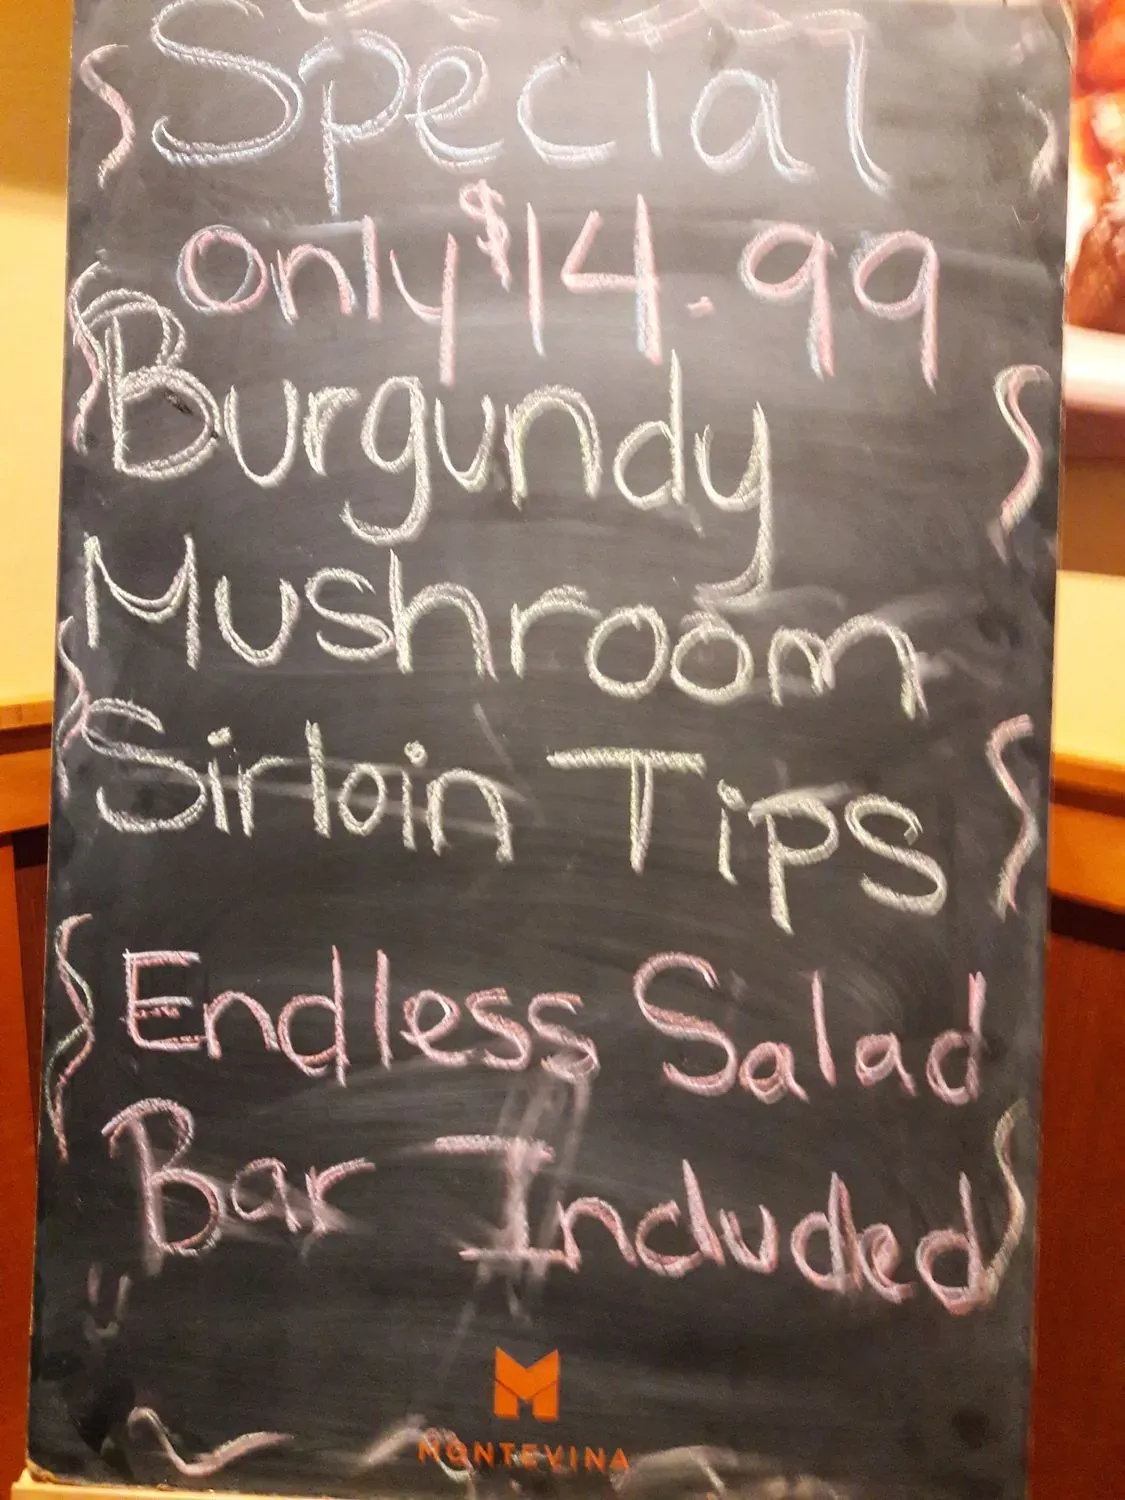 Special
Only $14.99
Burgundy
Mushroom
Sirloin Tips
Endless Salad
Bar Included
M
MONTEVINA